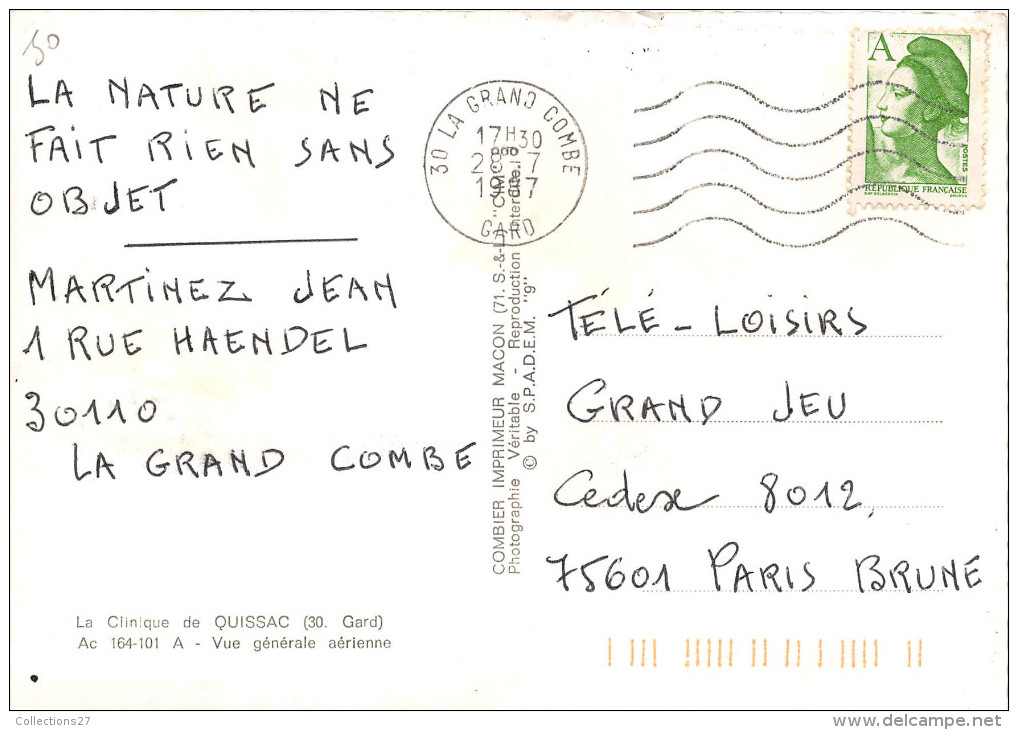 30
LA NATURE NE
FAIT RIEN SANS
OBJET
MARTINEZ JEAN
1 RUE HAENDEL
30110
LA GRAND COMBE
La Clinique de QUISSAC (30. Gard)
Ac 164-101 A - Vue générale aérienne
30 LA GRAND COMBE
17H30
28-7
GARD
COMBIER IMPRIMEUR MACON (71. S.-&-L. "CIM"
Photographie Véritable - Reproduction Interdite
© by S.P.A.D.E.M. "9"
A
POSTES
RÉPUBLIQUE FRANÇAISE
TÉLÉ - LOISIRS
GRAND JEU
Cedex 8012,
75601 PARIS BRUNE
Collections27
www.delcampe.net